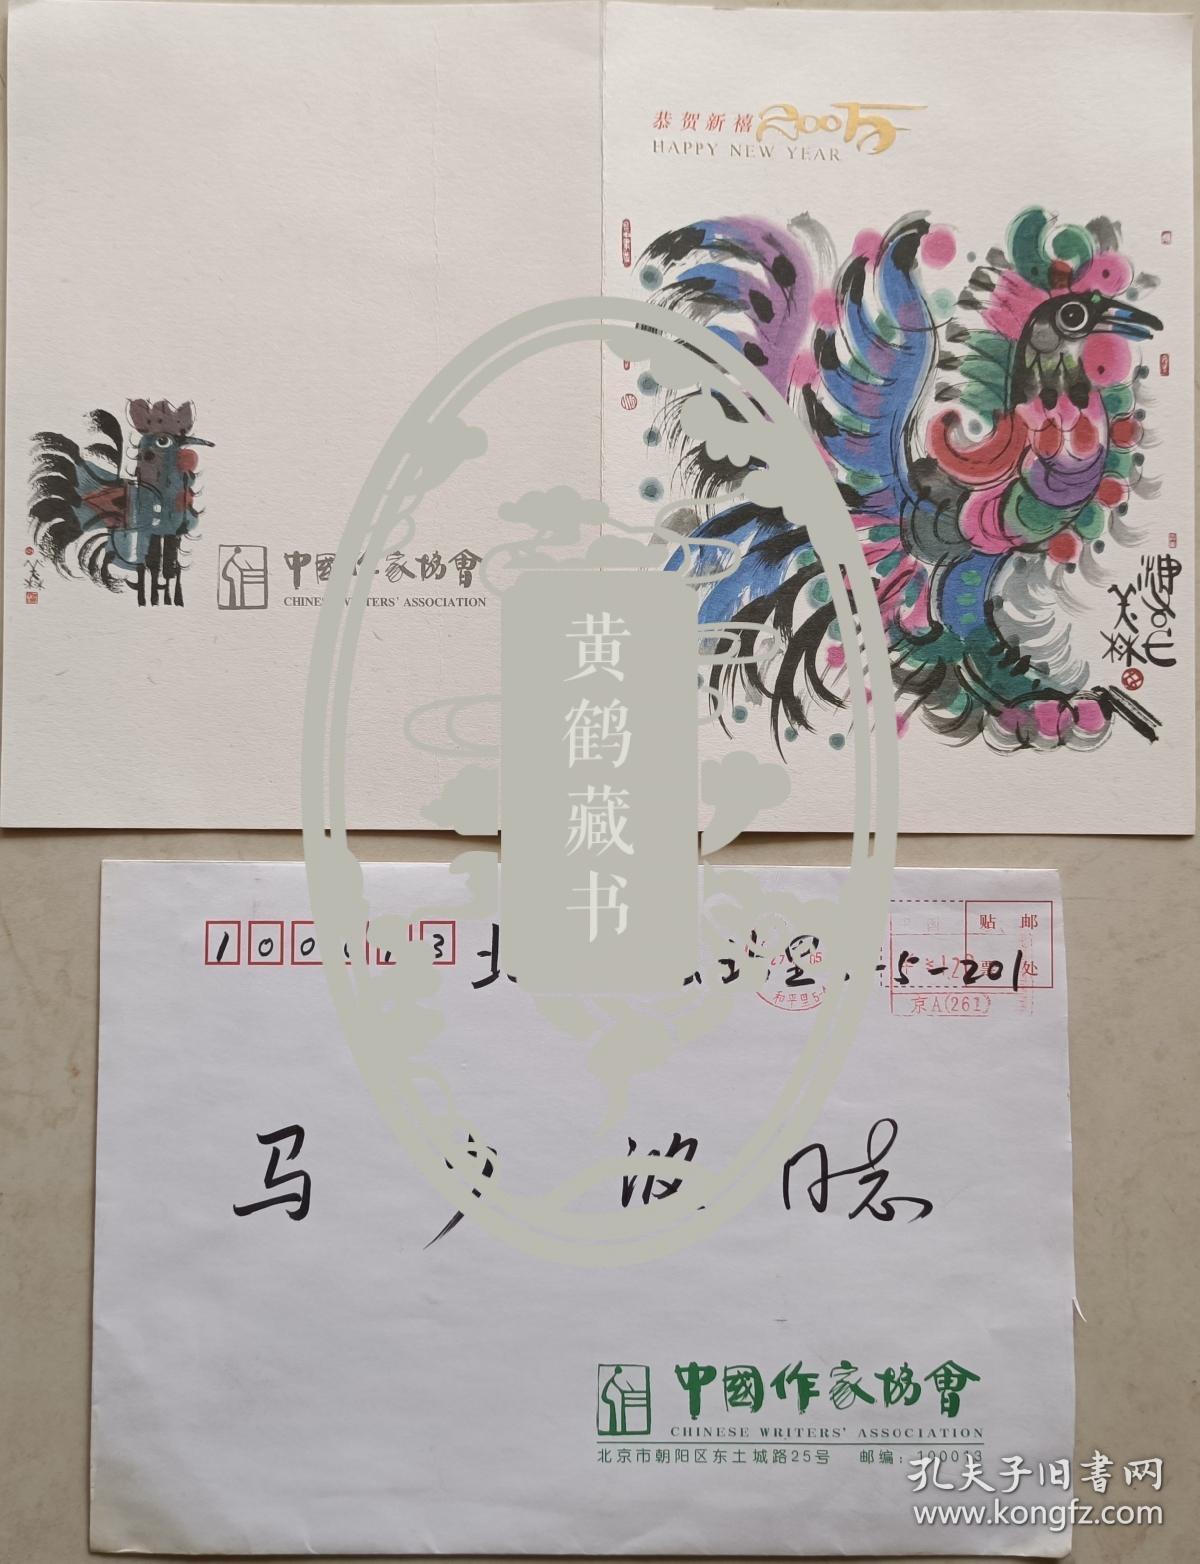 恭贺新禧2005
HAPPY NEW YEAR
中國作家協會
CHINESE WRITERS' ASSOCIATION
黄鹤藏书
100013
贴邮
票处
里
5-201
和平里5
京A(261)
马
波同志
中國作家協會
CHINESE WRITERS' ASSOCIATION
北京市朝阳区东土城路25号 邮编：100013
孔夫子旧书网
www.kongfz.com